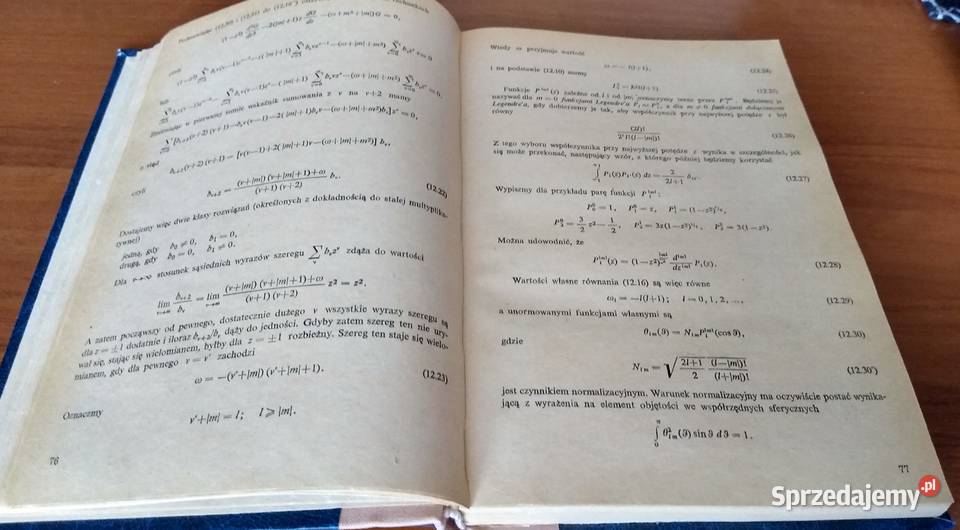 Podstawiając (12.20) i (12.21) do (12.16')
(1−z²) d²G/dz² −2(|m|+1)z dG/dz −(ω+m²+|m|)G = 0,
czyli
lub
Zmieniając w pierwszej sumie wskaźnik sumowania z ν na ν+2 mamy
∑[b_{ν+2}(ν+2)(ν+1)−b_νν(ν−1)−2(|m|+1)b_νν−(ω+|m|+m²)b_ν]z^ν = 0,
a stąd
b_{ν+2}(ν+2)(ν+1) = [ν(ν−1)+2(|m|+1)ν−(ω+|m|+m²)] b_ν,
czyli
b_{ν+2} = (ν+|m|)(ν+|m|+1)+ω / (ν+1)(ν+2) b_ν. (12.22)
Dostajemy więc dwie klasy rozwiązań (określonych z dokładnością do stałej multyplika-
tywnej)
jedną, gdy b₀ ≠ 0, b₁ = 0,
drugą, gdy b₀ = 0, b₁ ≠ 0.
Dla ν→∞ stosunek sąsiednich wyrazów szeregu ∑_ν b_νz^ν zdąża do wartości
lim_{ν→∞} b_{ν+2}/b_ν = lim_{ν→∞} (ν+|m|)(ν+|m|+1)+ω / (ν+1)(ν+2) z² = z².
A zatem począwszy od pewnego, dostatecznie dużego ν wszystkie wyrazy szeregu są
dla z = ±1 dodatnie i iloraz b_{ν+2}/b_ν dąży do jedności. Gdyby zatem szereg ten nie ury-
wał się, stając się wielomianem, byłby dla z = ±1 rozbieżny. Szereg ten staje się wielo-
mianem, gdy dla pewnego ν = ν' zachodzi
ω = −(ν'+|m|)(ν'+|m|+1). (12.23)
Oznaczmy
ν'+|m| = l; l ⩾ |m|.
76
Wtedy ω przyjmuje wartość
ω = −l(l+1), (12.24)
i na podstawie (12.10) mamy
(12.25)
Funkcje P^{|m|}(z) zależne od l i od |m| oznaczymy teraz przez P_l^{|m|}. Będziemy je
nazywali dla m = 0 funkcjami Legendre'a P_l = P_l^0, a dla m ≠ 0 funkcjami dołączonymi
Legendre'a, gdy dobierzemy je tak, aby współczynnik przy najwyższej potędze z był
równy
(2l)! / 2^l l!(l−|m|)! (12.26)
Z tego wyboru współczynnika przy najwyższej potędze z wynika w szczególności, jak
się może przekonać, następujący wzór, z którego później będziemy korzystać
∫_{−1}^{+1} P_l(z)P_{l'}(z) dz = 2/(2l+1) δ_{ll'}. (12.27)
Wypiszmy dla przykładu parę funkcji P_l^{|m|}:
P_0^0 = 1, P_1^0 = z, P_1^1 = (1−z²)^{1/2},
P_2^0 = 3/2 z² − 1/2, P_2^1 = 3z(1−z²)^{1/2}, P_2^2 = 3(1−z²).
Można udowodnić, że
P_l^{|m|}(z) = (1−z²)^{|m|/2} d^{|m|}/dz^{|m|} P_l(z). (12.28)
Wartości własne równania (12.16) są więc równe
ω_l = −l(l+1); l = 0, 1, 2, ..., (12.29)
a unormowanymi funkcjami własnymi są
θ_{lm}(ϑ) = N_{lm}P_l^{|m|}(cos ϑ), (12.30)
gdzie
N_{lm} = √( (2l+1)/2 (l−|m|)!/(l+|m|)! ) (12.30')
jest czynnikiem normalizacyjnym. Warunek normalizacyjny ma oczywiście postać wynika-
jącą z wyrażenia na element objętości we współrzędnych sferycznych
∫_0^π θ²_{lm}(ϑ) sin ϑ dϑ = 1.
77
Sprzedajemy.pl